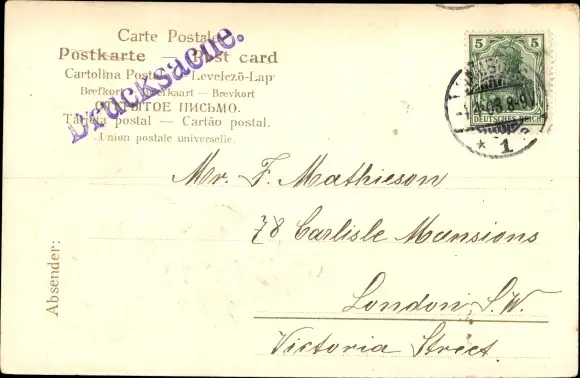 Carte Postale
Postkarte — Post card
Cartolina Postale — Levelező-Lap
Brefkort — Briefkaart — Brevkort
ОТКРЫТОЕ ПИСЬМО.
Tarjeta postal — Cartão postal.
Union postale universelle.
Drucksache.
5 5
DEUTSCHES REICH
8-9
* 1
Mr. F. Mathieson
78 Carlisle Mansions
London S.W.
Victoria Street.
Absender: